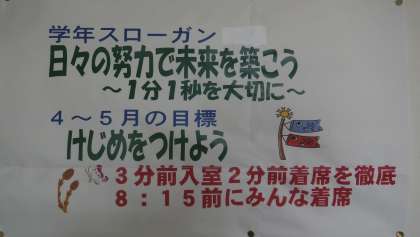 学年スローガン
日々の努力で未来を築こう
～1分1秒を大切に～
4～5月の目標
けじめをつけよう
3分前入室2分前着席を徹底
8：15前にみんな着席